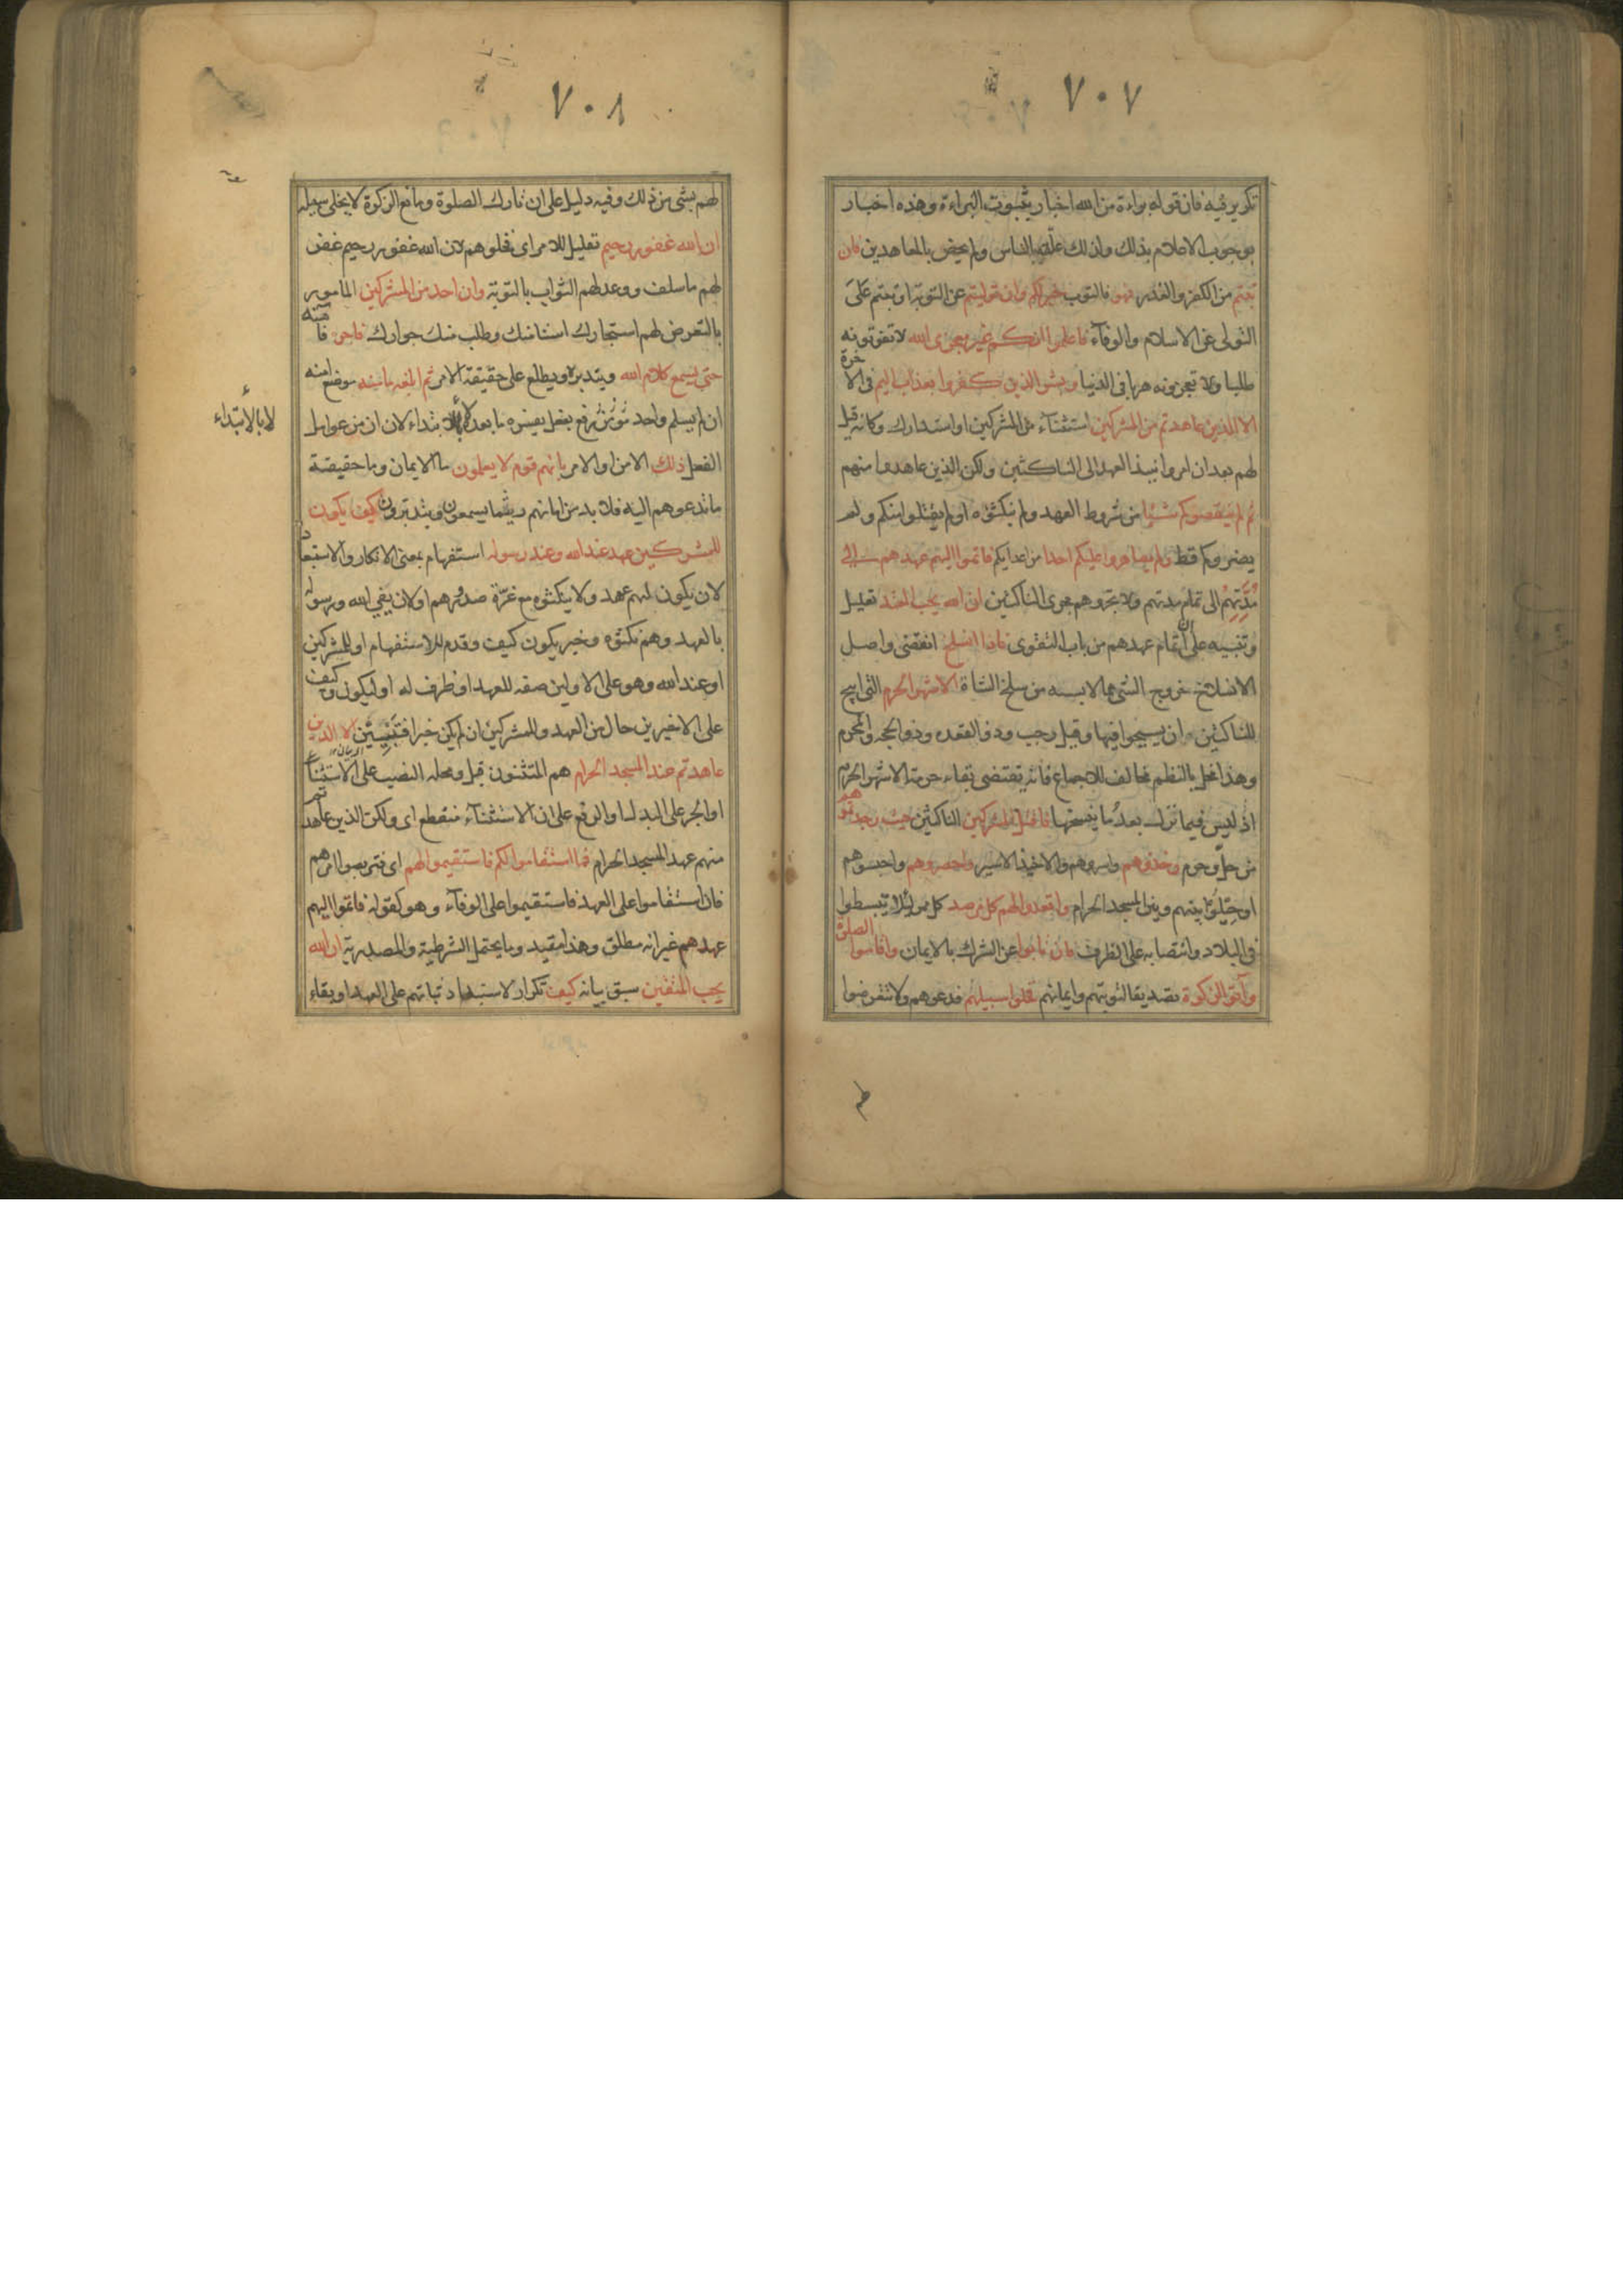 ٧٠٧
تكرير فيه فان قوله براءة من الله اخبار بثبوت البراءة وهذه اخبار
بوجوب الاعلام بذلك ولذلك علقه بالناس ولم يخص بالمعاهدين فان
تبتم من الكفر والغدر فهو فالتوب خير لكم وان توليتم عن التوبة او تبتم على
التولى عن الاسلام والوفآء فاعلموا انكم غير معجزى الله لا تفوتونه
طلبا ولا تعجزونه هربا فى الدنيا وبشر الذين كفروا بعذاب اليم فى الاخرة
الا الذين عاهدتم من المشركين استثنآء من المشركين او استدراك وكانه قيل
لهم بعد ان امروا بنبذ العهد الى الناكثين ولكن الذين عاهدوا منهم
ثم لم ينقصوكم شيئا من شروط العهد ولم ينكثوه او لم يقتلوا منكم ولم
يضروكم قط ولم يظاهروا عليكم احدا من اعدايكم فاتموا اليهم عهدهم الى
مُدَّتِهِمْ الى تمام مدتهم ولا تجروهم مجرى الناكثين ان الله يحب المتقين تعليل
وتنبيه على ان اتمام عهدهم من باب التقوى فاذا انسلخ انقضى واصل
الانسلاخ خروج الشى مما لابسه من سلخ الشاة الاشهر الحرم التى ابيح
للناكثين ان يسيحوا فيها وقيل رجب وذو القعده وذو الحجه والمحرم
وهذا مخل بالنظم مخالف للاجماع فانه يقتضى بقاء حرمة الاشهر الحرم
اذ ليس فيما نزل بعد ما ينسخها فاقتلوا المشركين الناكثين حيث وجدتموهم
من حل وحرم وخذوهم واسروهم والاخيذ الاسير واحصروهم واحبسوهم
او حيلوا بينهم وبين المسجد الحرام واقعدوا لهم كل مرصد كل ممر لئلا يتبسطوا
فى البلاد وانتصابه على الظرف فان تابوا عن الشرك بالايمان واقاموا الصلوة
وآتوا الزكوة تصديقا لتوبتهم وايمانهم فخلوا سبيلهم فدعوهم ولا تتعرضوا
٧٠٨
لهم بشى من ذلك وفيه دليل على ان تارك الصلوة ومانع الزكوة لا يخلى سبيله
ان الله غفور رحيم تعليل للامر اى فخلوهم لان الله غفور رحيم غفر
لهم ما سلف ووعد لهم الثواب بالتوبة وان احد من المشركين المامور
بالتعرض لهم استجارك استامنك وطلب منك جوارك فاجره فامنه
حتى يسمع كلام الله ويتدبره ويطلع على حقيقة الامر ثم ابلغه مامنه موضع امنه
ان لم يسلم واحد رفع بفعل يفسره ما بعده لا بالابتداء لان ان من عوامل
الفعل ذلك الامن او الامر بانهم قوم لا يعلمون ما الايمان وما حقيقة
ما تدعوهم اليه فلا بد من امانهم ريثما يسمعون ويتدبرون كيف يكون
للمشركين عهد عند الله وعند رسوله استفهام بمعنى الانكار والاستبعاد
لان يكون لهم عهد ولا ينكثوه مع غرة صدورهم او لان يفى الله ورسوله
بالعهد وهم نكثوه وخبر يكون كيف وقدم للاستفهام او للمشركين
او عند الله وهو على الاولين صفه للعهد او ظرف له او ليكون وكيف
على الاخيرين حال من العهد وللمشركين ان لم يكن خبرا فتبيين الا الذين
عاهدتم عند المسجد الحرام هم المستثنون قبل ومحله النصب على الاستثناء
او الجر على البدل او الرفع على ان الاستثنآء منقطع اى ولكن الذين عاهدتم
منهم عهد المسجد الحرام فما استقاموا لكم فاستقيموا لهم اى فتربصوا امرهم
فان استقاموا على العهد فاستقيموا على الوفآء وهو كقوله فاتموا اليهم
عهدهم غير انه مطلق وهذا مقيد وما يحتمل الشرطية والمصدرية ان الله
يحب المتقين سبق بيانه كيف تكرار لاستبعاد ثباتهم على العهد او بقاء
لا بالابتداء